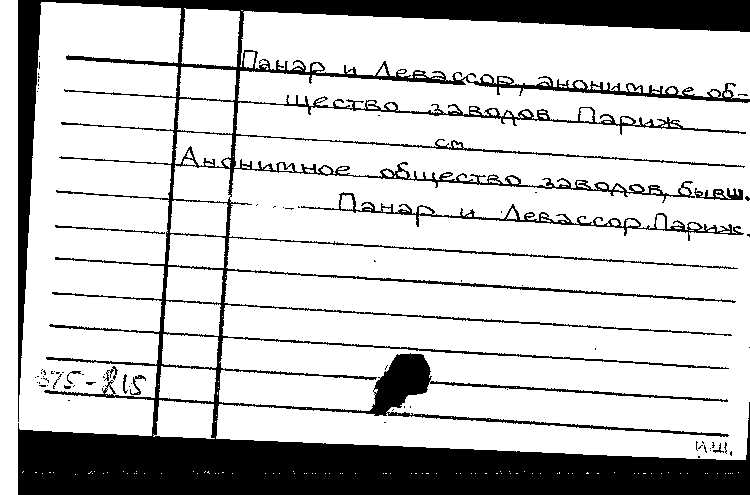 Панар и Левассор, анонимное об-
щество заводов Париж
см
Анонимное общество заводов, бывш.
Панар и Левассор. Париж.
375-815
И.Ш.